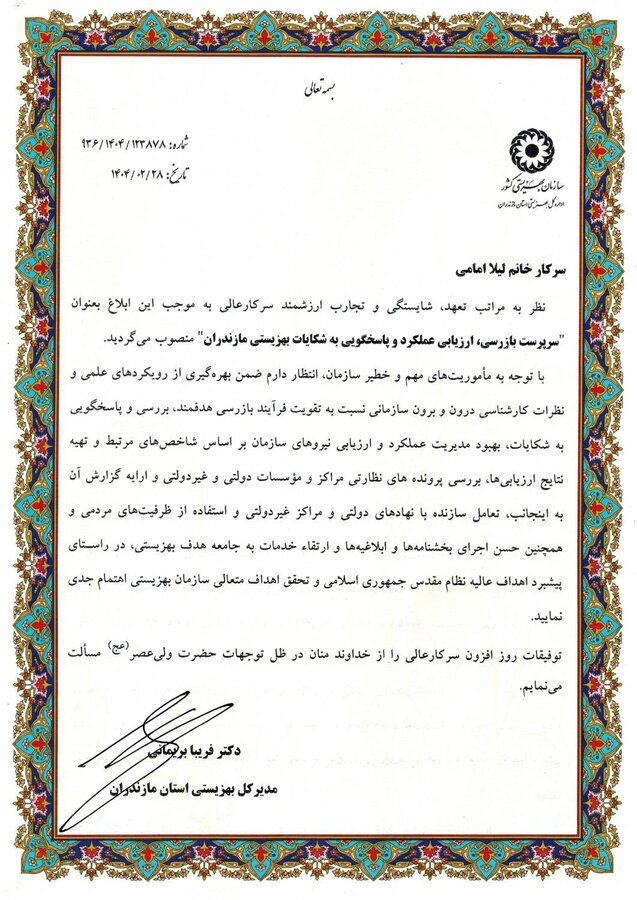 بسمه تعالی
شماره: ۹۳۶/۱۴۰۴/۱۲۳۸۷۸
تاریخ: ۱۴۰۴/۰۲/۲۸
سازمان بهزیستی کشور
اداره کل بهزیستی استان مازندران
سرکار خانم لیلا امامی
نظر به مراتب تعهد، شایستگی و تجارب ارزشمند سرکارعالی به موجب این ابلاغ بعنوان
"سرپرست بازرسی، ارزیابی عملکرد و پاسخگویی به شکایات بهزیستی مازندران" منصوب می‌گردید.
با توجه به مأموریت‌های مهم و خطیر سازمان، انتظار دارم ضمن بهره‌گیری از رویکردهای علمی و
نظرات کارشناسی درون و برون سازمانی نسبت به تقویت فرآیند بازرسی هدفمند، بررسی و پاسخگویی
به شکایات، بهبود مدیریت عملکرد و ارزیابی نیروهای سازمان بر اساس شاخص‌های مرتبط و تهیه
نتایج ارزیابی‌ها، بررسی پرونده های نظارتی مراکز و مؤسسات دولتی و غیردولتی و ارایه گزارش آن
به اینجانب، تعامل سازنده با نهادهای دولتی و مراکز غیردولتی و استفاده از ظرفیت‌های مردمی و
همچنین حسن اجرای بخشنامه‌ها و ابلاغیه‌ها و ارتقاء خدمات به جامعه هدف بهزیستی، در راستای
پیشبرد اهداف عالیه نظام مقدس جمهوری اسلامی و تحقق اهداف متعالی سازمان بهزیستی اهتمام جدی
نمایید.
توفیقات روز افزون سرکارعالی را از خداوند منان در ظل توجهات حضرت ولی‌عصر(عج) مسألت
می‌نمایم.
دکتر فریبا بریمانی
مدیرکل بهزیستی استان مازندران